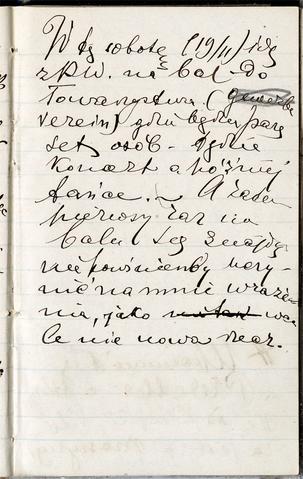 W tę sobotę (19/II) idę
z KW. na bal do
Towarzystwa (Gewerbe
verein) gdzie będzie parę
set osób. Ogólnie
Koncert a później
tańce. A że ten
pierwszy raz na
balu się znajdę,
nie powinienby uczy-
nić na mnie wraże-
nia, jako wca-
le nie nowa rzecz.